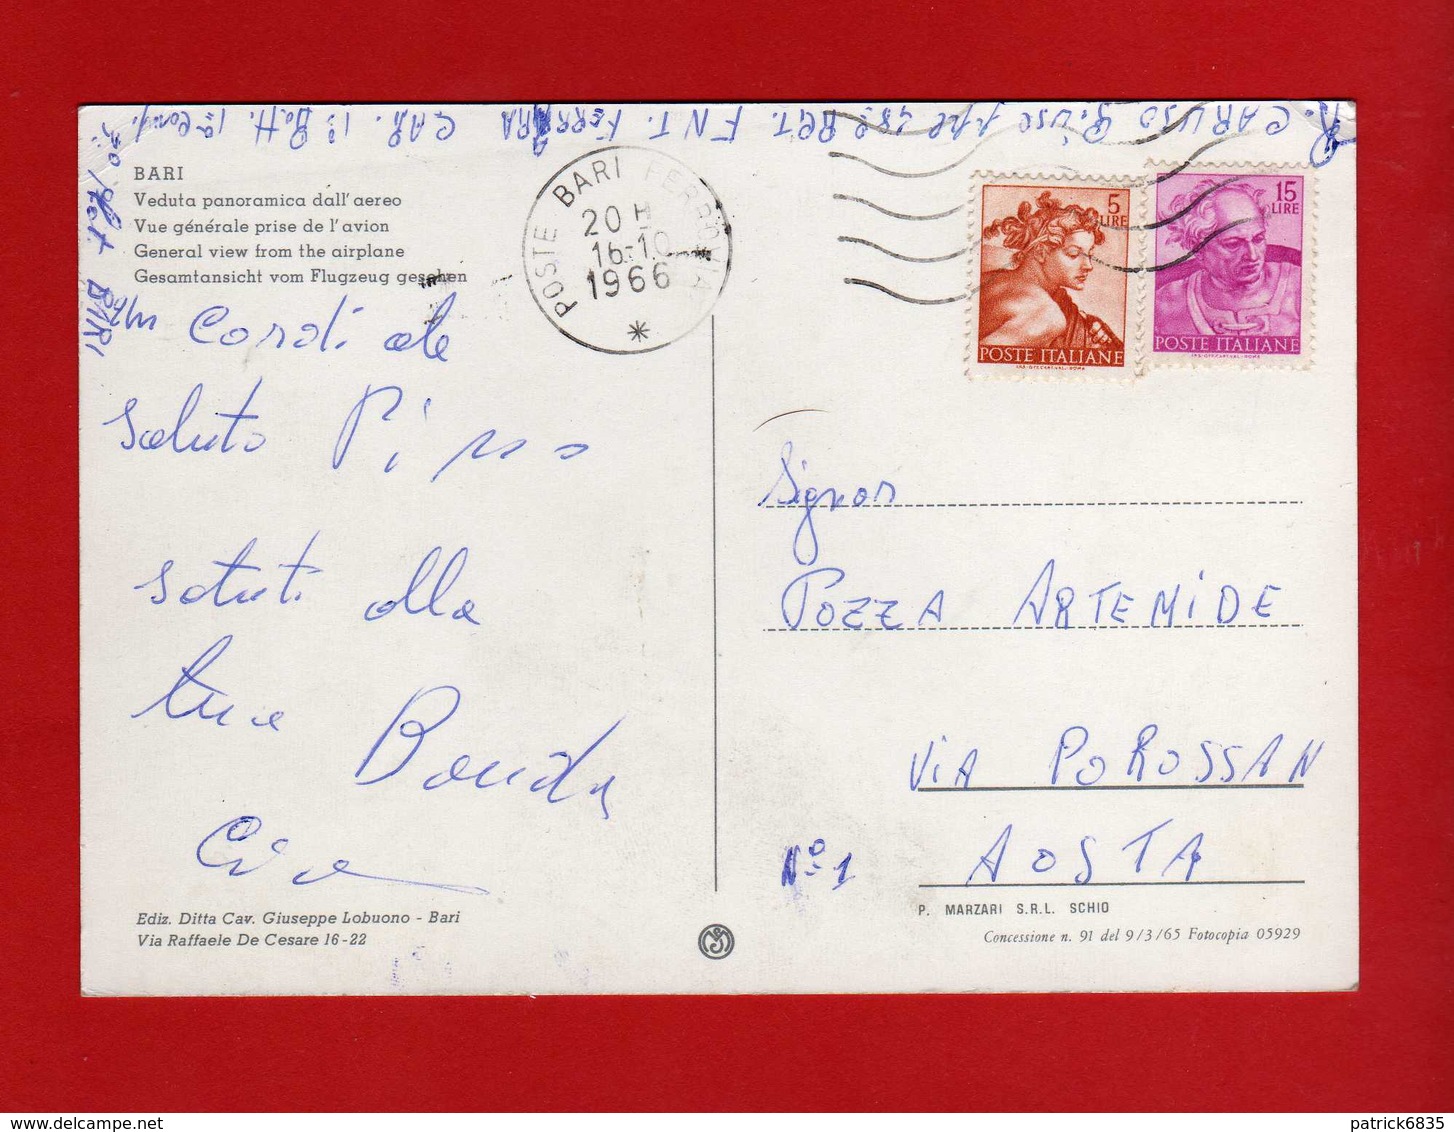 BARI
Veduta panoramica dall'aereo
Vue générale prise de l'avion
General view from the airplane
Gesamtansicht vom Flugzeug gesehen
POSTE BARI FERROVIA
20 H
16-10
1966
5
LIRE
POSTE ITALIANE
15
LIRE
POSTE ITALIANE
CARUSO
FNT. FERRARA
CAR. 1° Batt. 1°
BARI
Cordiale
saluto Pino
saluti alla
tua
Ciao
Signor
POZZA ARTEMIDE
VIA POROSSAN
N° 1
AOSTA
Ediz. Ditta Cav. Giuseppe Lobuono - Bari
Via Raffaele De Cesare 16-22
P. MARZARI S.R.L. SCHIO
Concessione n. 91 del 9/3/65 Fotocopia 05929
patrick6835